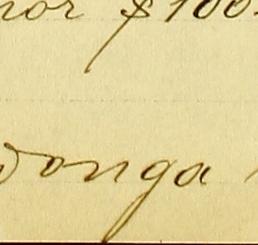 nor $100.
onga